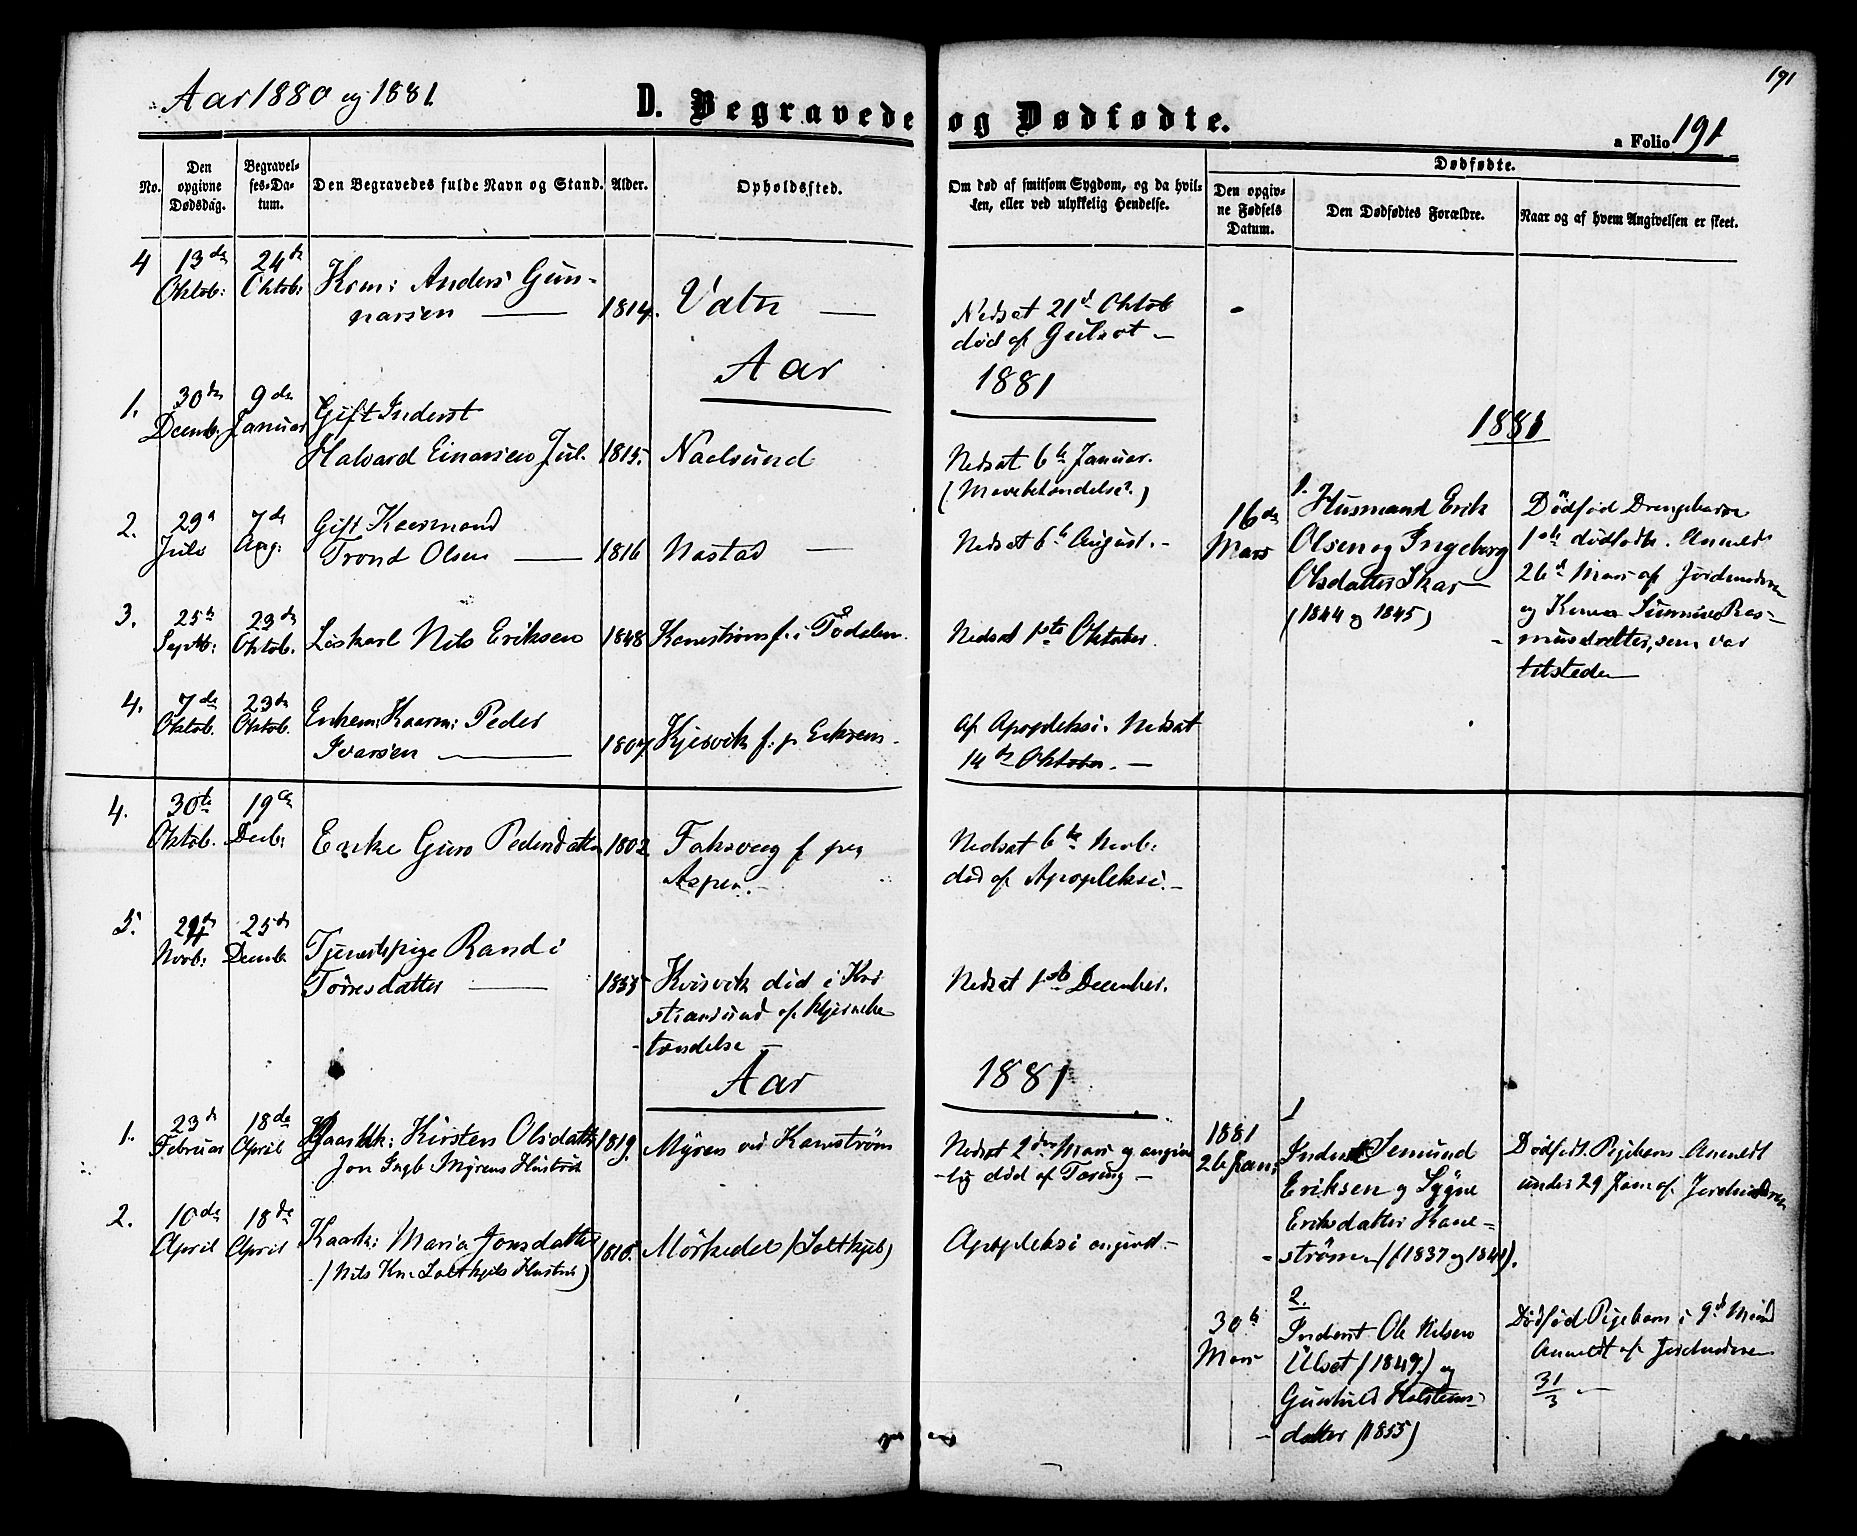 191
Aar 1880 og 1881
D. Begravede og Dødfødte.
a Folio 191
No.
Den opgivne Dødsdag.
Begravelses-Datum.
Den Begravedes fulde Navn og Stand.
Alder.
Opholdssted.
Om død af smitsom Sygdom, og da hvilken, eller ved ulykkelig Hendelse.
Dødfødte.
Den opgivne Fødsels Datum.
Den Dødfødtes Forældre.
Naar og af hvem Angivelsen er skeet.
4 13de Oktob: 24de Oktob: Anders Gunnarsen — 1814. Vatn —
Nedsat 21d Oktob
død af Gulsot —
Aar 1881
1. 30de Decemb. 9de Januar Gift Inderst
Halvard Einarsen Jul. 1815. Naelsund
Nedsat 6te Januar.
1881
2. 29 Juli 7de Aug: Gift Kaarmand
Trond Olsen — 1816 Nastad —
Nedsat 6te August. —
16de Mars
1. Husmand Erik
Olsen og Ingeborg
Olsdatter Skar —
(1844 og 1845)
Dødfød Drengebarn
1ste dødfødte. Anmeldt
26d Mars af Jordmoderen
og Kona Rasmusdatter, som var
tilstede —
3. 25te Septb: 23de Oktob. Løskarl Nils Eriksen 1848 Kanestrøm f. i Tødalen.
Nedsat 1ste Oktober.
4. 7de Oktob. 23de Oktob. Enkem: Kaarm: Peder
Ivarsen — 1807 Kjesvik f: p.
Af Apopleksi. Nedsat
14de Oktober. —
4. 30te Oktob. 19de Decb: Enke Guro Pedersdatter 1802 Faksvaag f. paa
Aspen. —
Nedsat 6te Novb:
død af Apopleksi. —
5. Novb: 25de Decemb. Tjenestpige Randi
Toresdatter — 1835 Kvisvik død i Kristiansund af Hjernebetændelse —
Nedsat 1ste December.
Aar 1881
1. 23de Februar 18de April Kaark: Kirsten Olsdatter 1819. Myren ved Kanestrøm
Jon Ingb Myrens Hustru
Nedsat 2den Mars og angivelig død af Tæring —
1881
26 Jan:
1
Inderst Semund
Eriksen og Sygne
Eriksdatter Kanestrøm (1837 og 1841).
Dødfødt Pigebarn Anmeldt
under 29 Jan. af Jordmoderen
2. 10de April 18de April Kaark: Maria Jonsdatter 1810. Mørkedal (Soltkjel)
(Nils Kn. Soltkjels Hustru)
Apopleksi angivet. —
30te Mars
2.
Inderst Ole Nilsen
Ulset (1849) og
Gunhild Halstensdatter (1855)
Dødfød Pigebarn i 9d Maaned
Anmeldt af Jordmoderen
31/3 —